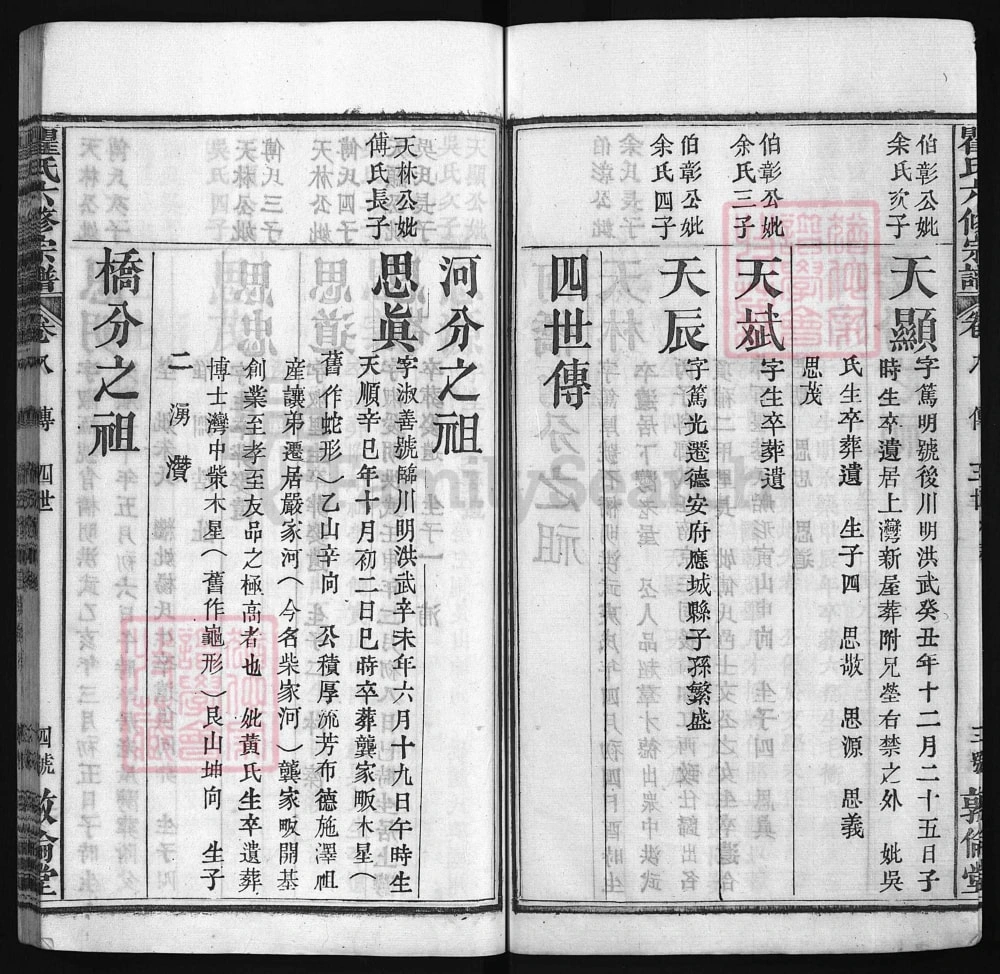 瞿氏六修宗譜
卷八 傳 三世
三號 敦倫堂
伯彰公妣
余氏次子
天顯
字篤明號後川明洪武癸丑年十二月二十五日子
時生卒遺居上灣新屋葬附兄塋右禁之外 妣吳
氏生卒葬遺 生子四 思敬 思源 思義
思茂
伯彰公妣
余氏三子
天斌
字生卒葬遺
伯彰公妣
余氏四子
天辰
字篤光遷德安府應城縣子孫繁盛
四世傳
河分之祖
天林公妣
傅氏長子
思眞
字淑善號臨川明洪武辛未年六月十九日午時生
天順辛巳年十月初二日巳時卒葬龔家畈木星(
舊作蛇形)乙山辛向 公積厚流芳布德施澤祖
産讓弟遷居嚴家河(今名柴家河)龔家畈開基
創業至孝至友品之極高者也 妣黃氏生卒遺葬
博士灣中柴木星(舊作龜形)艮山坤向 生子
二 湧 濳
橋分之祖
瞿氏六修宗譜
卷八 傳 四世
四號 敦倫堂